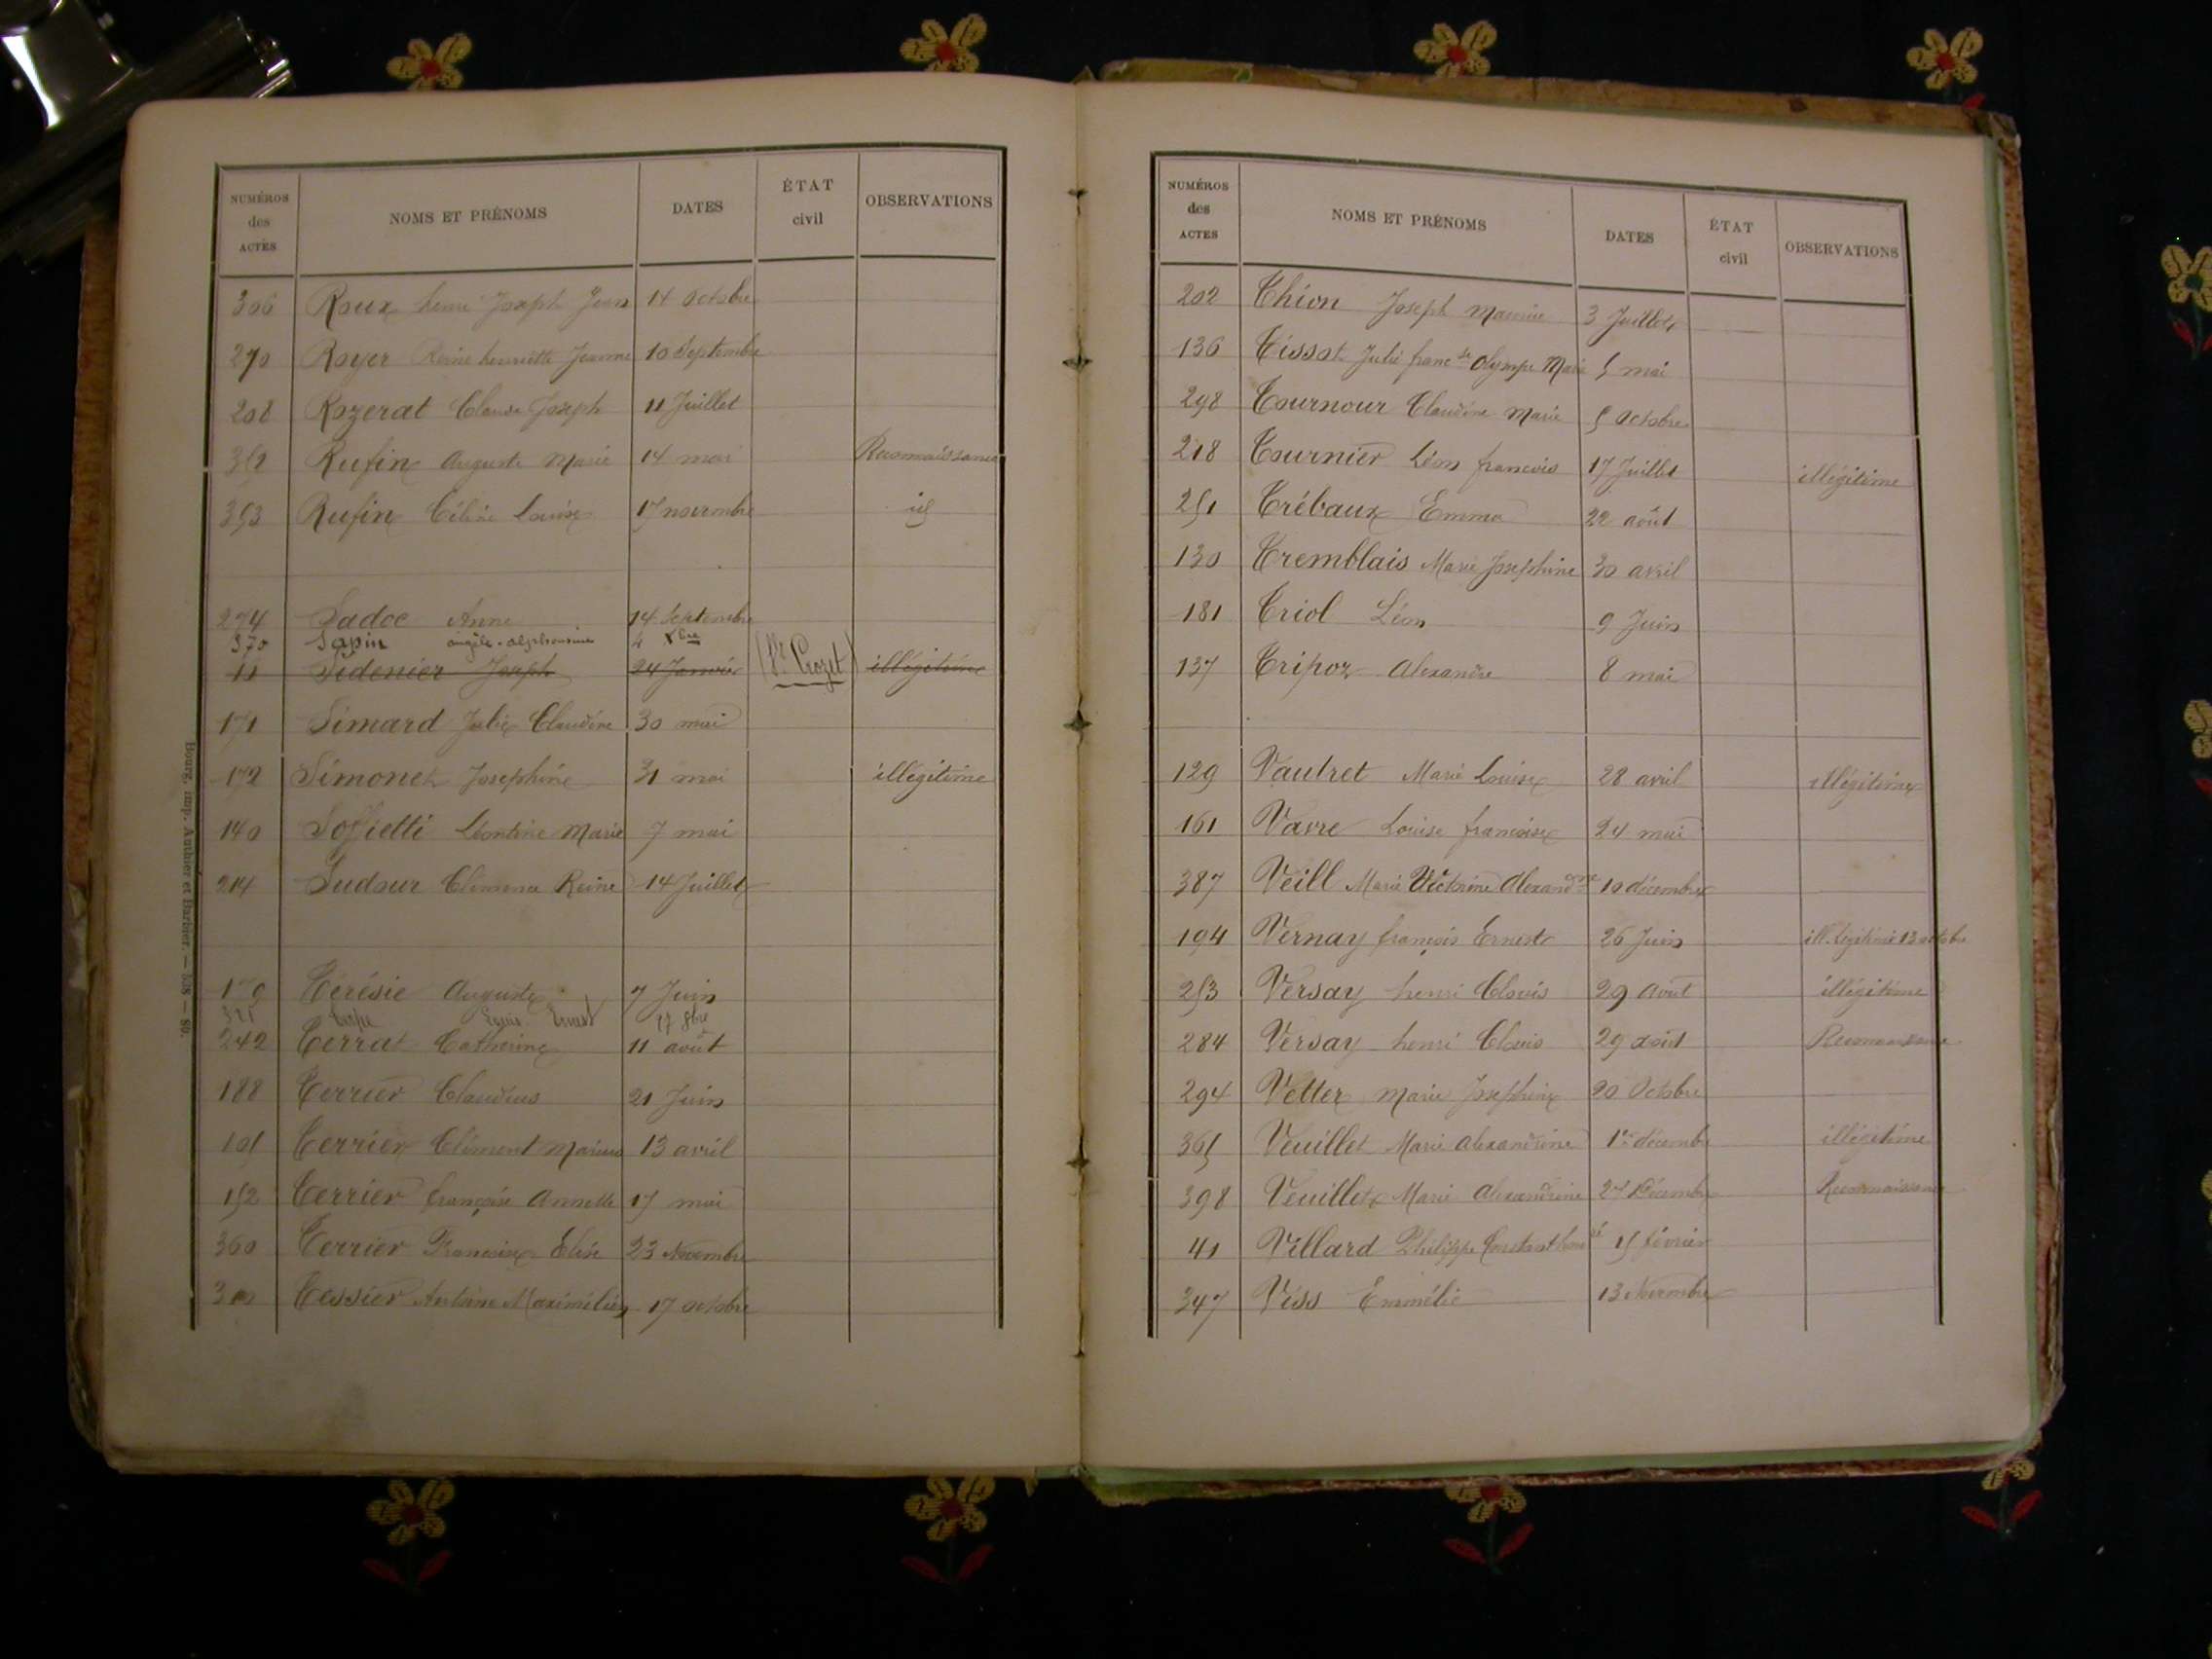 NUMÉROS des ACTES NOMS ET PRÉNOMS DATES ÉTAT civil OBSERVATIONS
306 Roux henri Joseph Jean 14 Octobre
270 Royer Reine henriette Jeanne 10 Septembre
208 Rozerat Claude Joseph 11 Juillet
352 Rufin Auguste Marie 14 mai Reconnaissance
353 Rufin Céline Louise 17 novembre id
274 Sadoc Anne 14 Septembre
370 Sapin angèle-alphonsine 4 Xbre
11 Sidenier Joseph 24 Janvier (St Crozet) illégitime
171 Simard Julie Claudine 30 mai
172 Simonet Josephine 31 mai illégitime
140 Soffietti Léontine Marie 7 mai
214 Sudour Clémence Reine 14 Juillet
Térésie Auguste 7 Juin
Louis Ernest
242 Terrat Catherine 11 août
188 Terrier Claudius 21 Juin
Terrier Clément Marius 13 avril
152 Terrier françoise Annette 17 mai
360 Terrier Françoise Elise 23 Novembre
Tessier Antoine Maximilien 17 octobre
Bourg, imp. Authier et Barbier. — 538 — 89.
NUMÉROS des ACTES NOMS ET PRÉNOMS DATES ÉTAT civil OBSERVATIONS
202 Thion Joseph 3 Juillet
136 Tissot Julie franc se Olympe Marie 5 mai
298 Tournour Claudine Marie 5 Octobre
218 Tournier Léon françois 17 Juillet illégitime
251 Trébaux Emma 22 août
130 Tremblais Marie Josephine 30 avril
181 Triol Léon 9 Juin
137 Tripoz Alexandre 8 mai
129 Vautret Marie Louise 28 avril illégitime
161 Vavre Louise françoise 24 mai
387 Veill Marie Victorine Alexandrne 10 décembre
194 Vernay françois Ernest 26 Juin ill. légitimé 13 octobre
253 Versay henri Clovis 29 Août illégitime
284 Versay henri Clovis 29 août Reconnaissance
294 Vetter Marie Josephine 20 Octobre
365 Veuillet Marie Alexandrine 1er décembre illégitime
398 Veuillet Marie Alexandrine 27 Décembre Reconnaissance
41 Villard Philippe 15 février
347 Viss Emmélie 13 Novembre